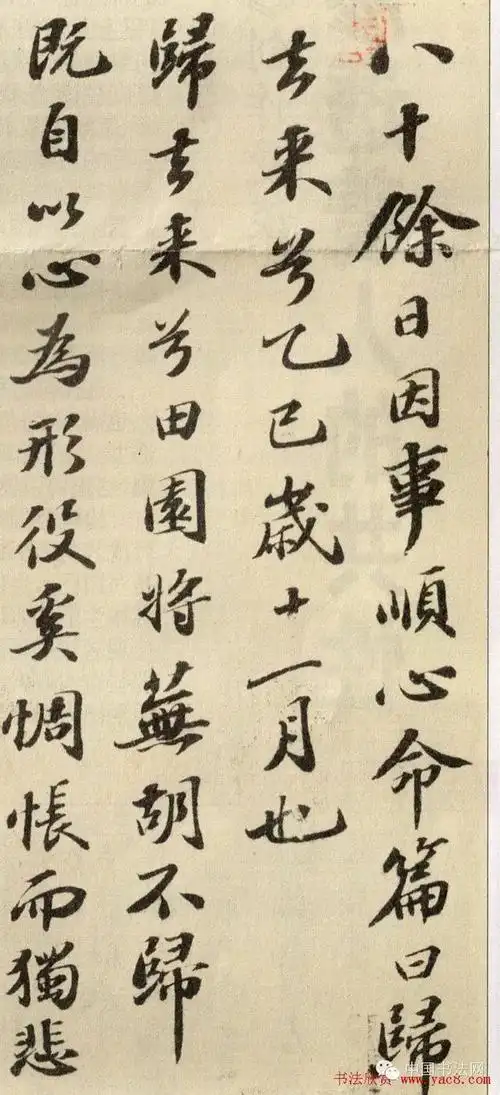 八十餘日因事順心命篇曰歸
去来兮乙巳歳十一月也
歸去来兮田園将蕪胡不歸
既自以心為形役奚惆悵而獨悲
中国书法网
书法欣赏 www.yac8.com